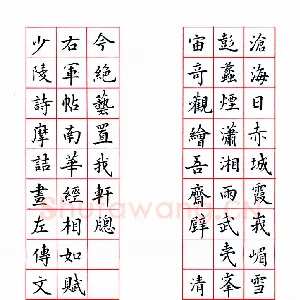 滄海日赤城霞峩嵋雪
彭蠡煙瀟湘雨武夷峯
宙奇觀繪吾齋壁 清
少陵詩摩詰畫左傳文
右軍帖南華經相如賦
今絕藝置我軒牕